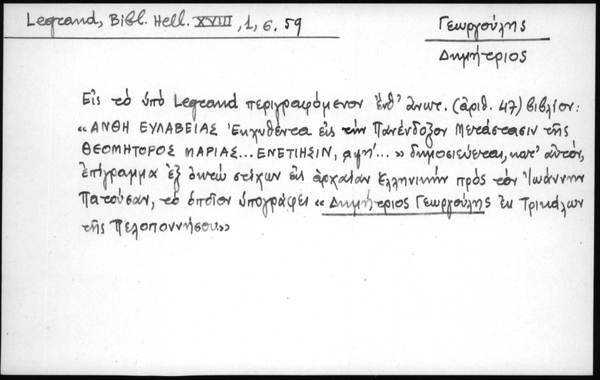 Legrand, Bibl. Hell. XVIII, 1, σ. 59
Γεωργούλης
Δημήτριος
Εἰς τὸ ὑπὸ Legrand περιγραφόμενον ἐνθ' ἀνωτ. (ἀριθ. 47) βιβλίον:
« ΑΝΘΗ ΕΥΛΑΒΕΙΑΣ Ἐκχυθέντα εἰς τὴν Πανένδοξον Μετάστασιν τῆς
ΘΕΟΜΗΤΟΡΟΣ ΜΑΡΙΑΣ... ΕΝΕΤΙΗΣΙΝ, αψη'... » δημοσιεύεται, κατ' αὐτόν,
ἐπίγραμμα ἐξ ὀκτὼ στίχων εἰς ἀρχαίαν ἑλληνικὴν πρὸς τὸν Ἰωάννην
Πατούσαν, τὸ ὁποῖον ὑπογράφει « Δημήτριος Γεωργούλης ἐκ Τρικάλων
τῆς Πελοποννήσου »